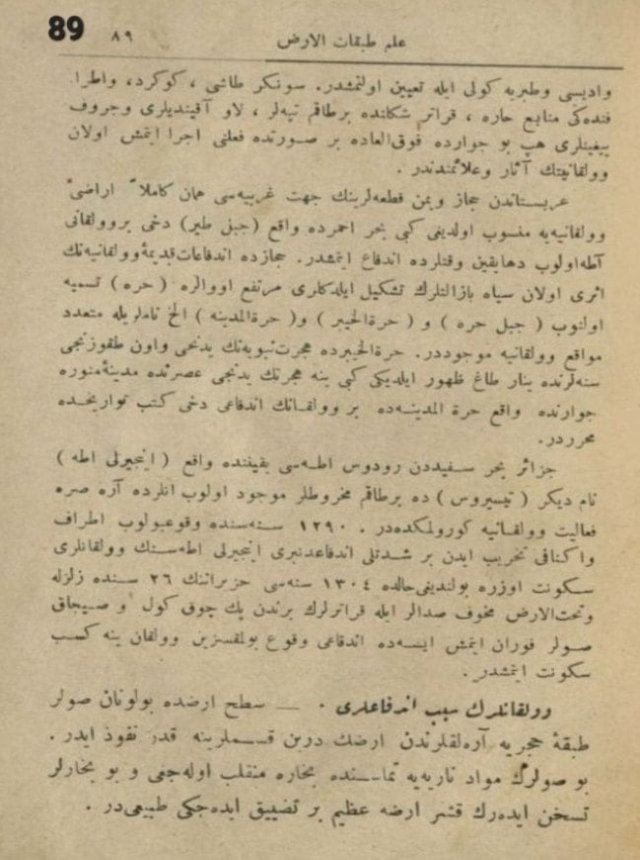 89
٨٩
علم طبقات الارض
واديسى وطبريه كولى ايله تعيين اولنمشدر. سونكر طاشى ، كوكرد، واطرا
فنده‌كى منابع حاره ، قراتر شكلنده برطاقم تپه‌لر ، لاو آقينديلرى وجروف
ييغينلرى هپ بو جوارده فوق‌العاده بر صورتده فعلنى اجرا ايتمش اولان
وولقانيتك آثار وعلائمندندر .
عربستاندن حجاز ويمن قطعه‌لرينك جهت غربيه‌سى همان كاملاً اراضئ
وولقانيه‌يه منسوب اولديغى كبى بحر احمرده واقع (جبل طير) دخى بروولقانى
آطه‌اولوب دهايقين وقتلرده اندفاع ايتمشدر. حجازده اندفاعات‌قديمۀوولقانيه‌نك
اثرى اولان سياه بازالتلرك تشكيل ايلدكلرى مرتفع اووالره (حره) تسميه
اولنوب ( جبل حره ) و ( حرةالخيبر ) و( حرةالمدينه ) الخ ناملريله متعدد
مواقع وولقانيه موجوددر. حرةالخيبرده هجرت‌نبويه‌نك يدنجى واون طقوزنجى
سنه‌لرنده ينار طاغ ظهور ايلديكى كبى ينه هجرتك يدنجى عصرنده مدينۀمنوره
جوارنده واقع حرة المدينه‌ده بر وولقانك اندفاعى دخى كتب تواريخده
محرردر.
جزائر بحر سفيددن رودوس اطه‌سى يقيننده واقع ( اينجيرلى اطه )
نام ديكر ( نيسيروس ) ده برطاقم مخروطلر موجود اولوب انلرده آره صره
فعاليت وولقانيه كورولمكده‌در . ١٢٩٠ سنه‌سنده وقوعبولوب اطراف
واكنافى تخريب ايدن بر شدتلى اندفاعدنبرى اينجيرلى اطه‌سنك وولقانلرى
سكونت اوزره بولنديغى‌حالده ١٣٠٤ سنه‌سى حزيراننك ٢٦ سنده زلزله
وتحت‌الارض مخوف صدالر ايله قراترلرك برندن پك چوق كول و صيجاق
صولر فوران ايتمش ايسه‌ده اندفاعى وقوع بولمقسزين وولقان ينه كسب
سكونت ايتمشدر.
وولقانلرك سبب اندفاعلرى . — سطح ارضده بولونان صولر
طبقۀ حجريه آره‌لقلرندن ارضك درين قسملرينه قدر نفوذ ايدر .
بو صولرك مواد ناريه‌يه تماسنده بخاره منقلب اوله‌جغى و بو بخارلر
تسخن ايده‌رك قشر ارضه عظيم بر تضييق ايده‌جكى طبيعى‌در .